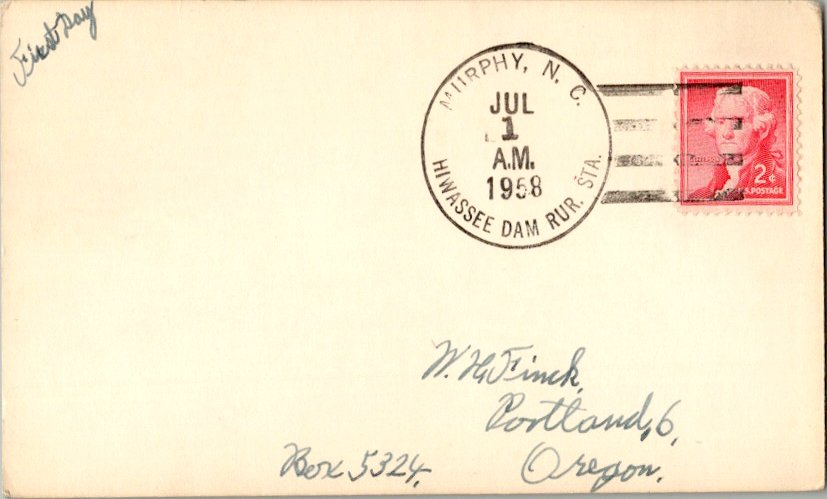 First Day
MURPHY, N. C.
JUL
1
A.M.
1958
HIWASSEE DAM RUR. STA.
2¢
U.S. POSTAGE
W. H. Finck,
Portland, 6,
Box 5324, Oregon.